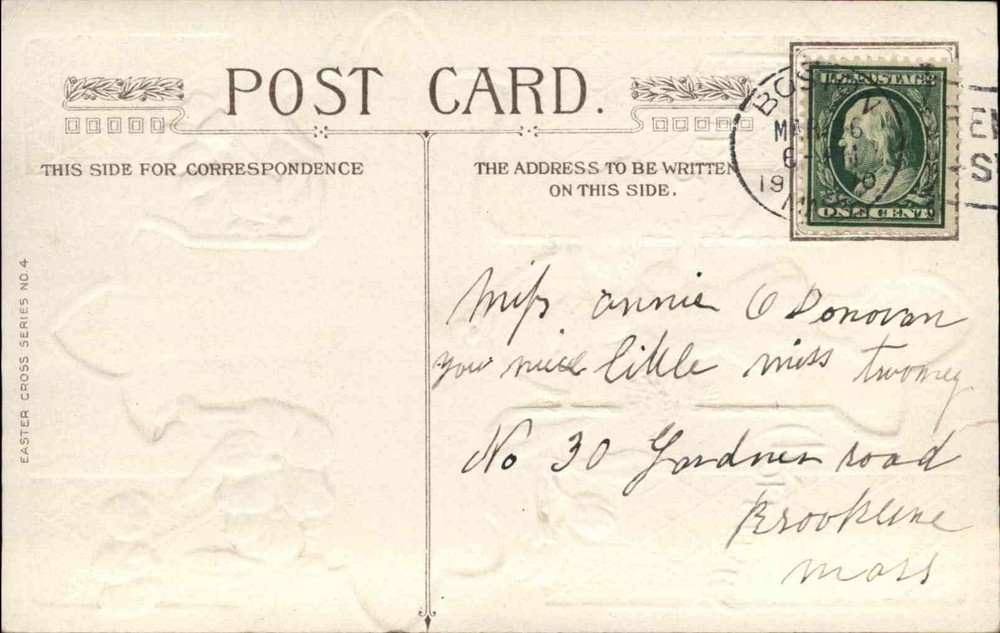 POST CARD.
THIS SIDE FOR CORRESPONDENCE
THE ADDRESS TO BE WRITTEN
ON THIS SIDE.
U.S. POSTAGE
ONE CENT
BOST
MAR 6
6
19
EASTER CROSS SERIES NO. 4
Miss Annie O Donovan
you nice little miss twomey
No 30 Gardner road
Brookline
mass